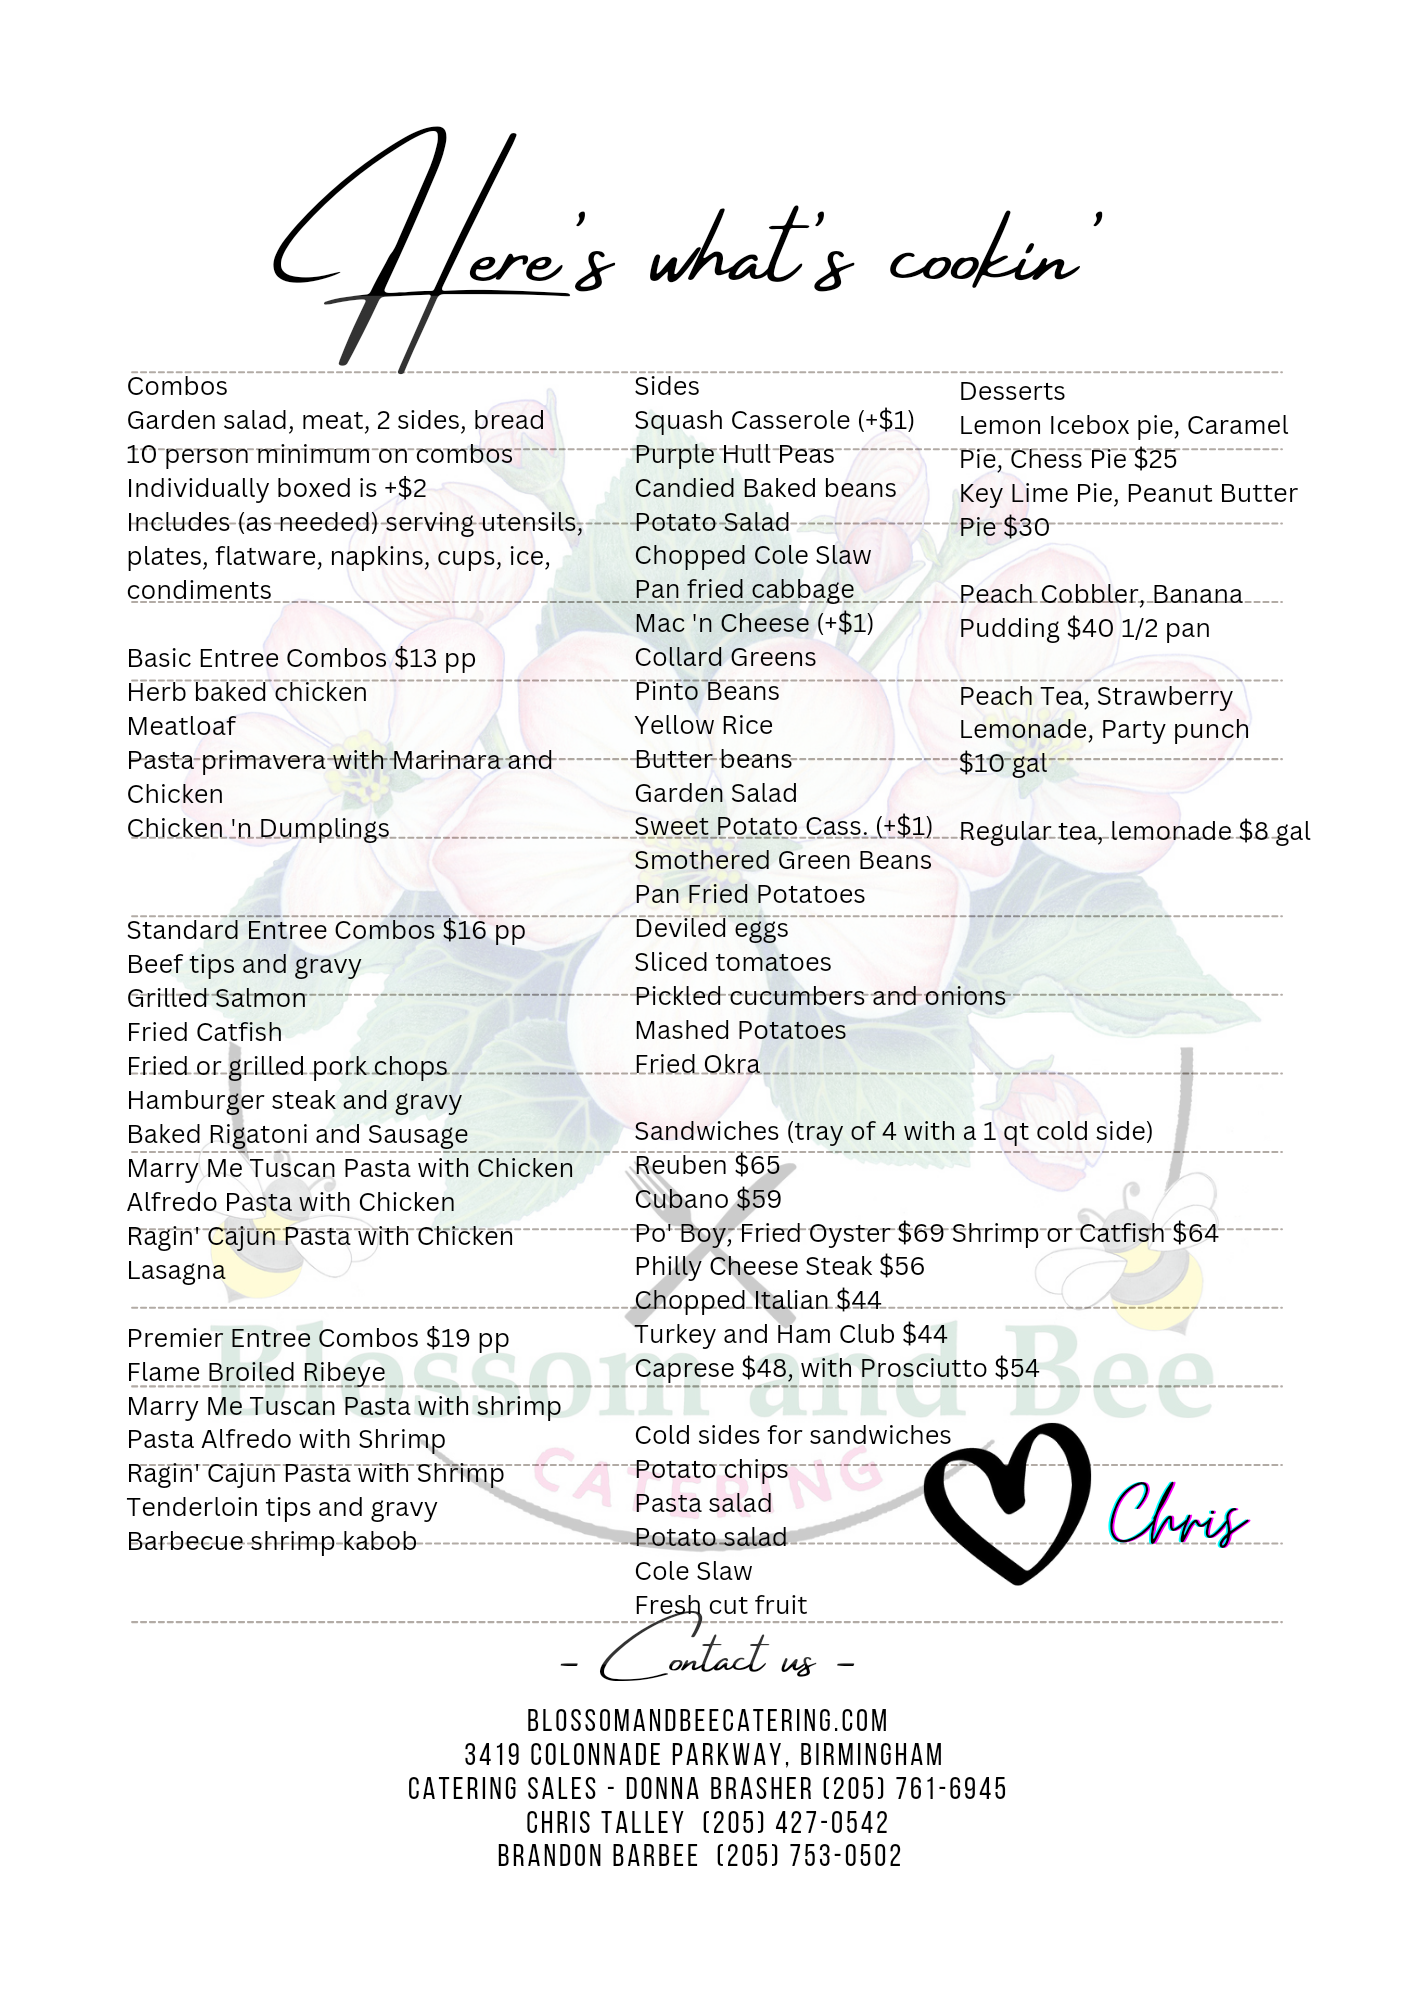 Here's what's cookin'
Combos
Garden salad, meat, 2 sides, bread
10 person minimum on combos
Individually boxed is +$2
Includes (as needed) serving utensils,
plates, flatware, napkins, cups, ice,
condiments
Basic Entree Combos $13 pp
Herb baked chicken
Meatloaf
Pasta primavera with Marinara and
Chicken
Chicken 'n Dumplings
Standard Entree Combos $16 pp
Beef tips and gravy
Grilled Salmon
Fried Catfish
Fried or grilled pork chops
Hamburger steak and gravy
Baked Rigatoni and Sausage
Marry Me Tuscan Pasta with Chicken
Alfredo Pasta with Chicken
Ragin' Cajun Pasta with Chicken
Lasagna
Premier Entree Combos $19 pp
Flame Broiled Ribeye
Marry Me Tuscan Pasta with shrimp
Pasta Alfredo with Shrimp
Ragin' Cajun Pasta with Shrimp
Tenderloin tips and gravy
Barbecue shrimp kabob
Sides
Squash Casserole (+$1)
Purple Hull Peas
Candied Baked beans
Potato Salad
Chopped Cole Slaw
Pan fried cabbage
Mac 'n Cheese (+$1)
Collard Greens
Pinto Beans
Yellow Rice
Butter beans
Garden Salad
Sweet Potato Cass. (+$1)
Smothered Green Beans
Pan Fried Potatoes
Deviled eggs
Sliced tomatoes
Pickled cucumbers and onions
Mashed Potatoes
Fried Okra
Sandwiches (tray of 4 with a 1 qt cold side)
Reuben $65
Cubano $59
Po' Boy; Fried Oyster $69 Shrimp or Catfish $64
Philly Cheese Steak $56
Chopped Italian $44
Turkey and Ham Club $44
Caprese $48, with Prosciutto $54
Cold sides for sandwiches
Potato chips
Pasta salad
Potato salad
Cole Slaw
Fresh cut fruit
Desserts
Lemon Icebox pie, Caramel
Pie, Chess Pie $25
Key Lime Pie, Peanut Butter
Pie $30
Peach Cobbler, Banana
Pudding $40 1/2 pan
Peach Tea, Strawberry
Lemonade, Party punch
$10 gal
Regular tea, lemonade $8 gal
Blossom and Bee
CATERING
Chris
- Contact us -
BLOSSOMANDBEECATERING.COM
3419 COLONNADE PARKWAY, BIRMINGHAM
CATERING SALES - DONNA BRASHER (205) 761-6945
CHRIS TALLEY (205) 427-0542
BRANDON BARBEE (205) 753-0502